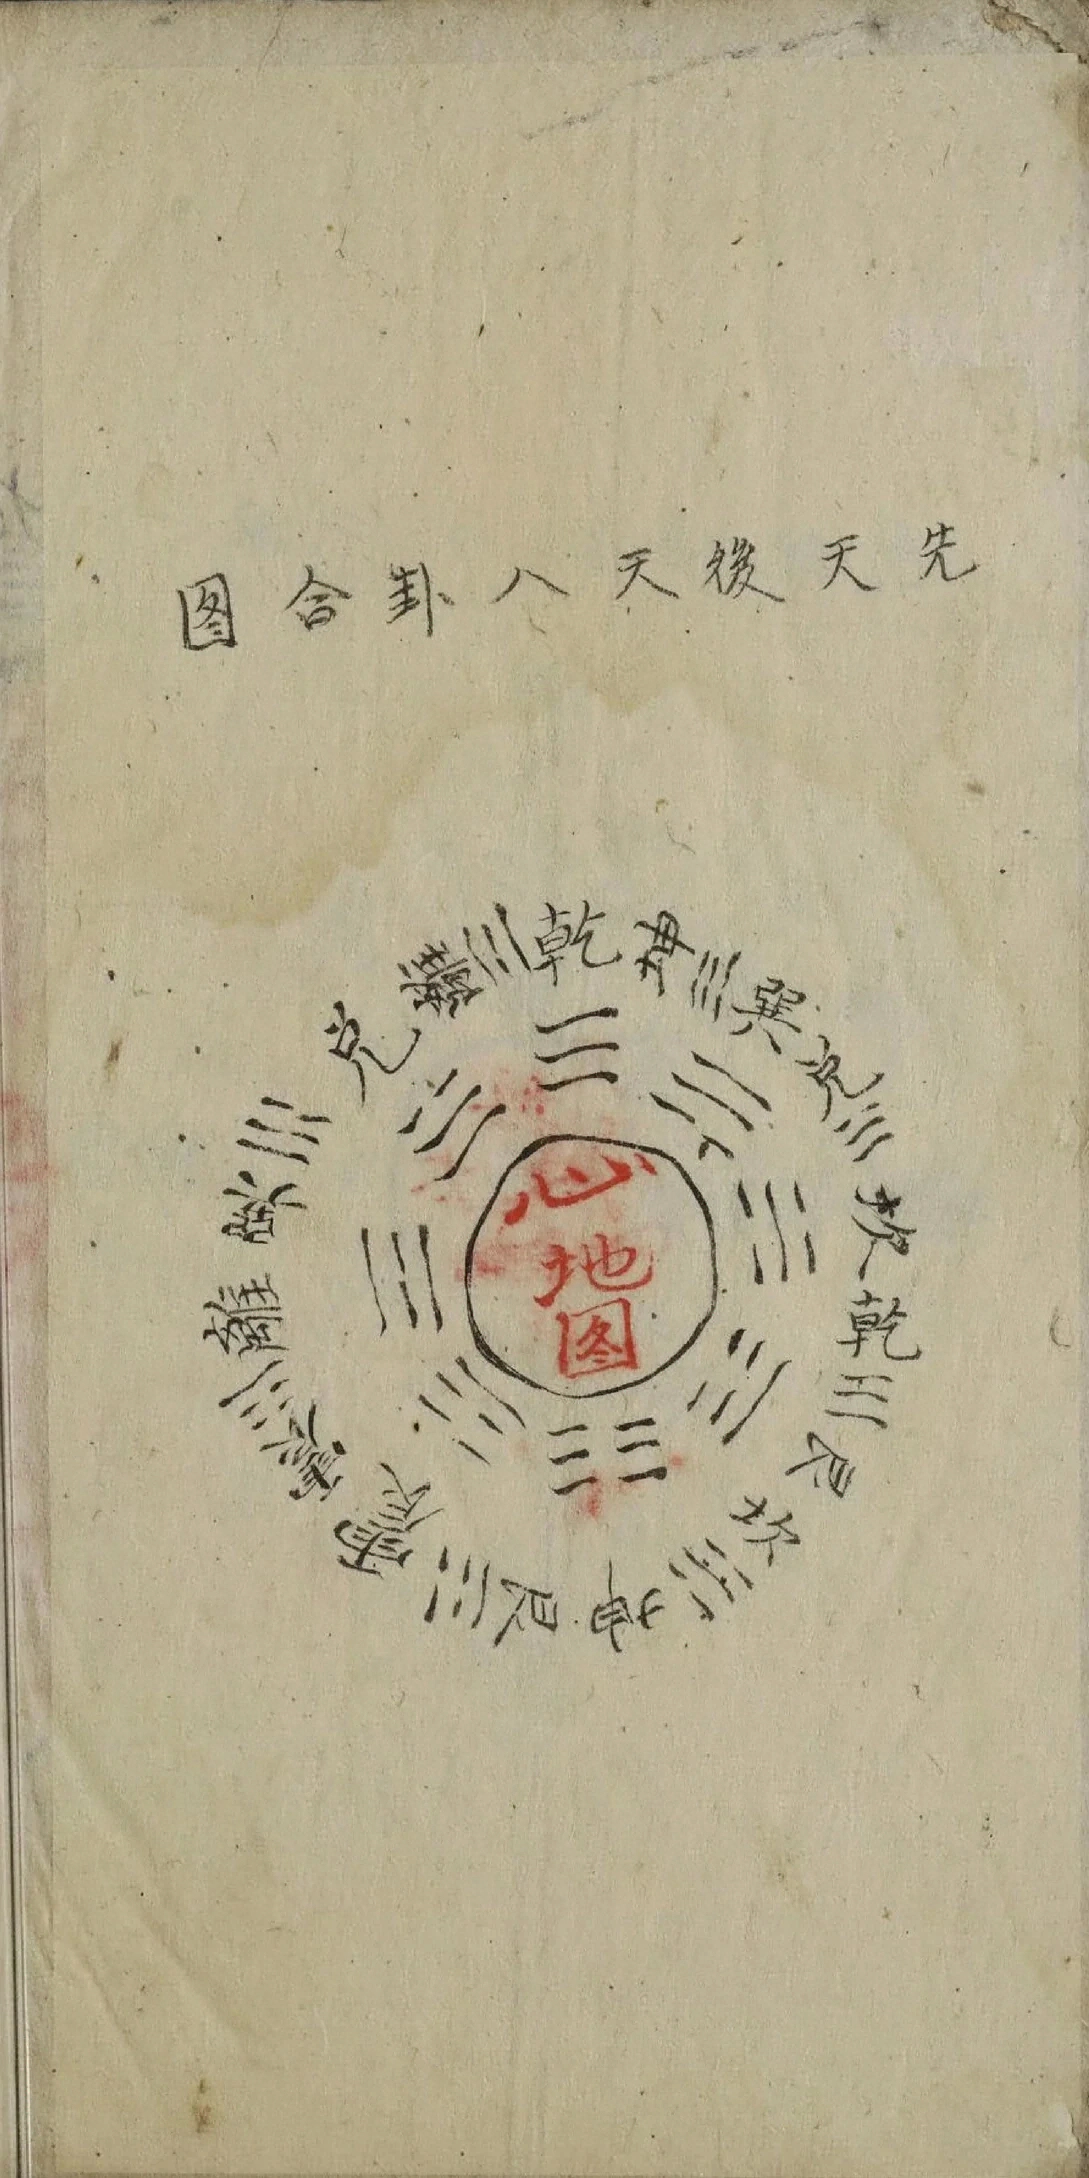 先天後天八卦合图
乾
坤
巽
兑
坎
乾
艮
坎
坤
艮
震
震
離
巽
兑
離
心地图